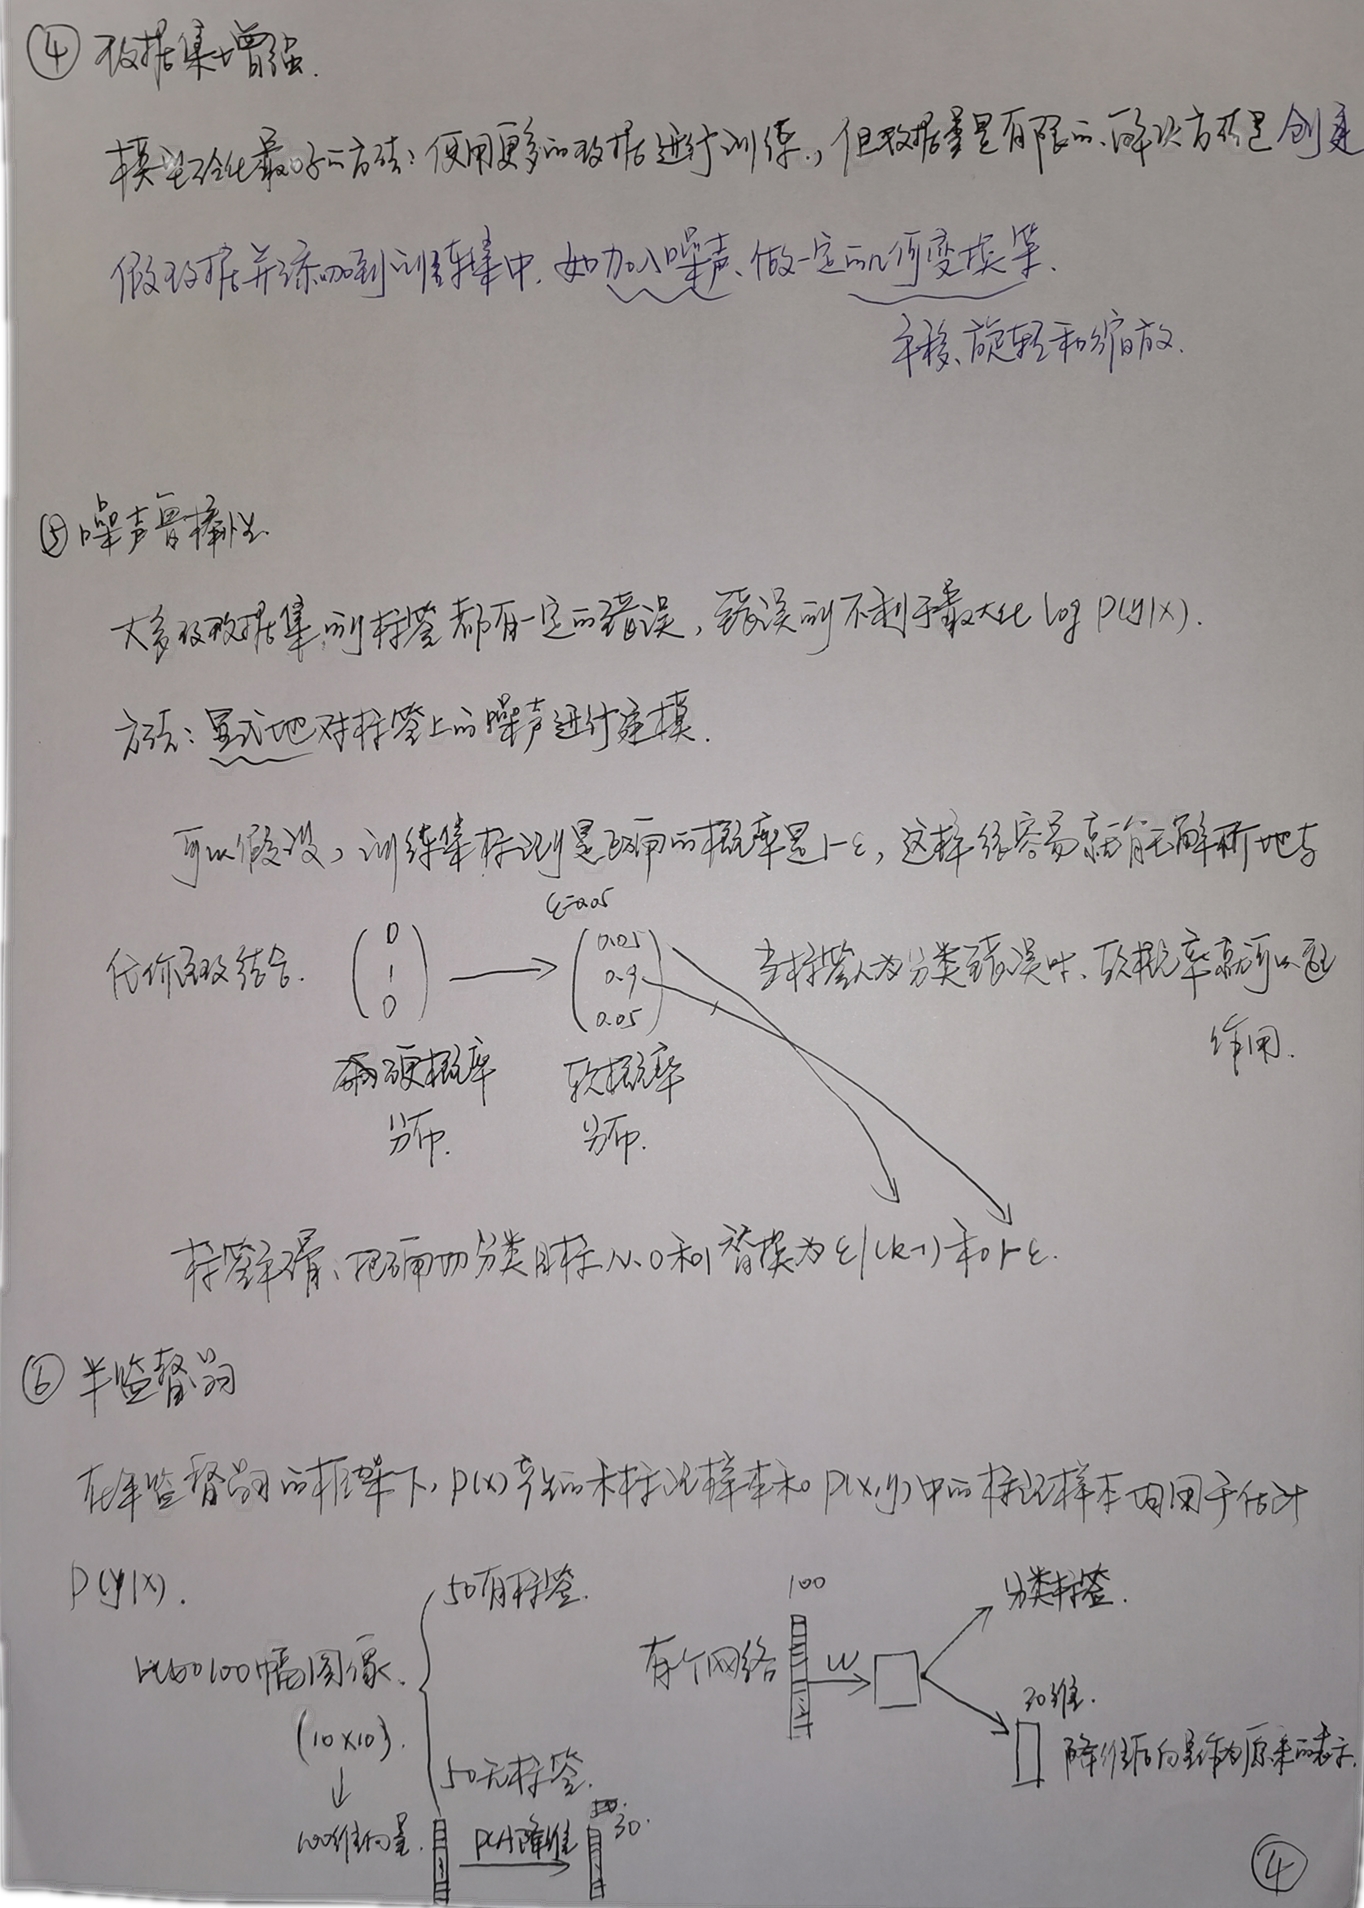 ④ 数据集增强.
模型泛化最好的方法:使用更多的数据进行训练.,但数据量是有限的、解决方法是创建
假数据并添加到训练集中.如加入噪声、做一定的几何变换等.
平移、旋转和缩放.
⑤ 噪声鲁棒性.
大多数数据集的标签都有一定的错误,错误的不利于最大化 log P(y|x).
方法:显式地对标签上的噪声进行建模.
可以假设,训练集标记是正确的概率是1-ε,这样很容易就能解析地与
ε=0.05
代价函数结合.
0
1
0
0.05
0.9
0.05
当标签为分类错误时、软概率就可以起
作用.
硬概率
分布.
软概率
分布.
标签平滑、把确切分类目标从0和1替换为ε/(k-1)和1-ε.
⑥ 半监督学习
在半监督学习的框架下,P(x)产生的未标记样本和P(x,y)中的标记样本均用于估计
P(y|x).
比如100幅图像.
(10×10).
↓
100维向量.
50有标签.
50无标签.
PCA降维
30.
有个网络
100
W
分类标签.
30维.
降维后向量作为原来的表示.
④